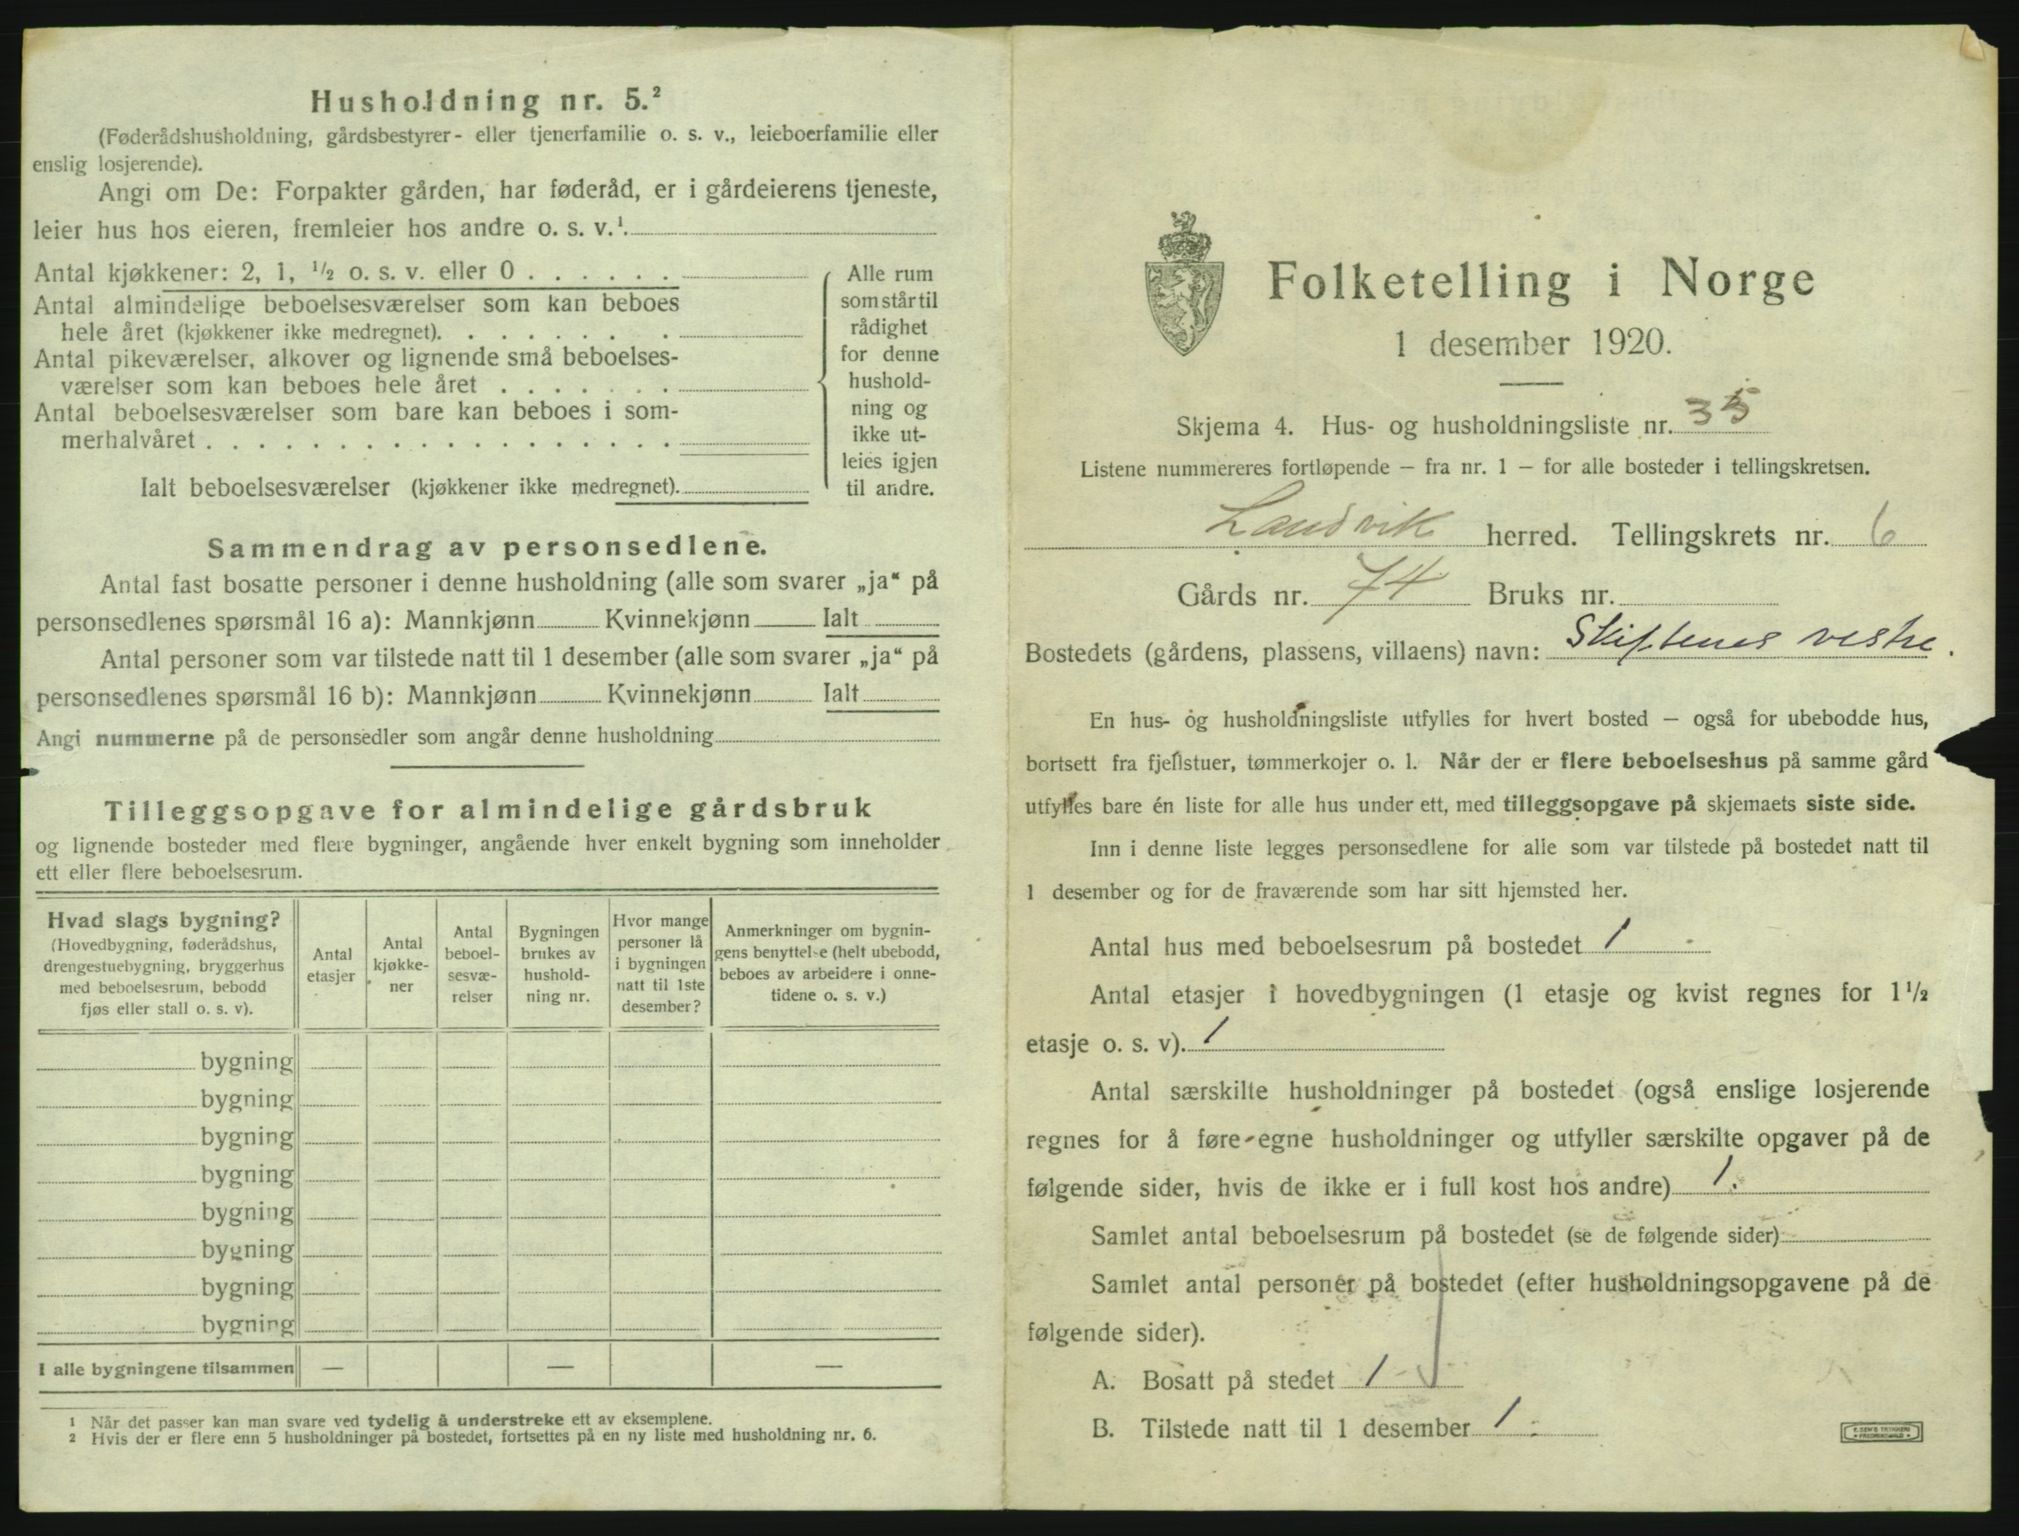 Husholdning nr. 5.²
(Føderådshusholdning, gårdsbestyrer- eller tjenerfamilie o. s. v., leieboerfamilie eller
enslig losjerende).
Angi om De: Forpakter gården, har føderåd, er i gårdeierens tjeneste,
leier hus hos eieren, fremleier hos andre o. s. v.¹.
Antal kjøkkener: 2, 1, ½ o. s. v. eller 0 . . . . . .
Antal almindelige beboelsesværelser som kan beboes
hele året (kjøkkener ikke medregnet). . . . . . . . .
Antal pikeværelser, alkover og lignende små beboelses-
værelser som kan beboes hele året . . . . . . .
Antal beboelsesværelser som bare kan beboes i som-
merhalvåret . . . . . . . . . . . . . . . . . .
Ialt beboelsesværelser (kjøkkener ikke medregnet).
Alle rum
som står til
rådighet
for denne
hushold-
ning og
ikke ut-
leies igjen
til andre.
Sammendrag av personsedlene.
Antal fast bosatte personer i denne husholdning (alle som svarer „ja“ på
personsedlenes spørsmål 16 a): Mannkjønn Kvinnekjønn Ialt
Antal personer som var tilstede natt til 1 desember (alle som svarer „ja“ på
personsedlenes spørsmål 16 b): Mannkjønn Kvinnekjønn Ialt
Angi nummerne på de personsedler som angår denne husholdning
Tilleggsopgave for almindelige gårdsbruk
og lignende bosteder med flere bygninger, angående hver enkelt bygning som inneholder
ett eller flere beboelsesrum.
Hvad slags bygning?
(Hovedbygning, føderådshus,
drengestuebygning, bryggerhus
med beboelsesrum, bebodd
fjøs eller stall o. s. v).
Antal
etasjer
Antal
kjøkke-
ner
Antal
beboel-
sesvæ-
relser
Bygningen
brukes av
hushold-
ning nr.
Hvor mange
personer lå
i bygningen
natt til 1ste
desember?
Anmerkninger om bygnin-
gens benyttelse (helt ubebodd,
beboes av arbeidere i onne-
tidene o. s. v.)
bygning
bygning
bygning
bygning
bygning
bygning
bygning
bygning
I alle bygningene tilsammen — — —
1 Når det passer kan man svare ved tydelig å understreke ett av eksemplene.
2 Hvis der er flere enn 5 husholdninger på bostedet, fortsettes på en ny liste med husholdning nr. 6.
Folketelling i Norge
1 desember 1920.
Skjema 4. Hus- og husholdningsliste nr. 35
Listene nummereres fortløpende — fra nr. 1 — for alle bosteder i tellingskretsen.
Landvik herred. Tellingskrets nr. 6
Gårds nr. 74 Bruks nr.
Bostedets (gårdens, plassens, villaens) navn: Skiftenes vestre.
En hus- og husholdningsliste utfylles for hvert bosted — også for ubebodde hus,
bortsett fra fjellstuer, tømmerkojer o. l. Når der er flere beboelseshus på samme gård
utfylles bare én liste for alle hus under ett, med tilleggsopgave på skjemaets siste side.
Inn i denne liste legges personsedlene for alle som var tilstede på bostedet natt til
1 desember og for de fraværende som har sitt hjemsted her.
Antal hus med beboelsesrum på bostedet 1
Antal etasjer i hovedbygningen (1 etasje og kvist regnes for 1½
etasje o. s. v). 1
Antal særskilte husholdninger på bostedet (også enslige losjerende
regnes for å føre egne husholdninger og utfyller særskilte opgaver på de
følgende sider, hvis de ikke er i full kost hos andre) 1.
Samlet antal beboelsesrum på bostedet (se de følgende sider)
Samlet antal personer på bostedet (efter husholdningsopgavene på de
følgende sider).
A. Bosatt på stedet 1
B. Tilstede natt til 1 desember 1